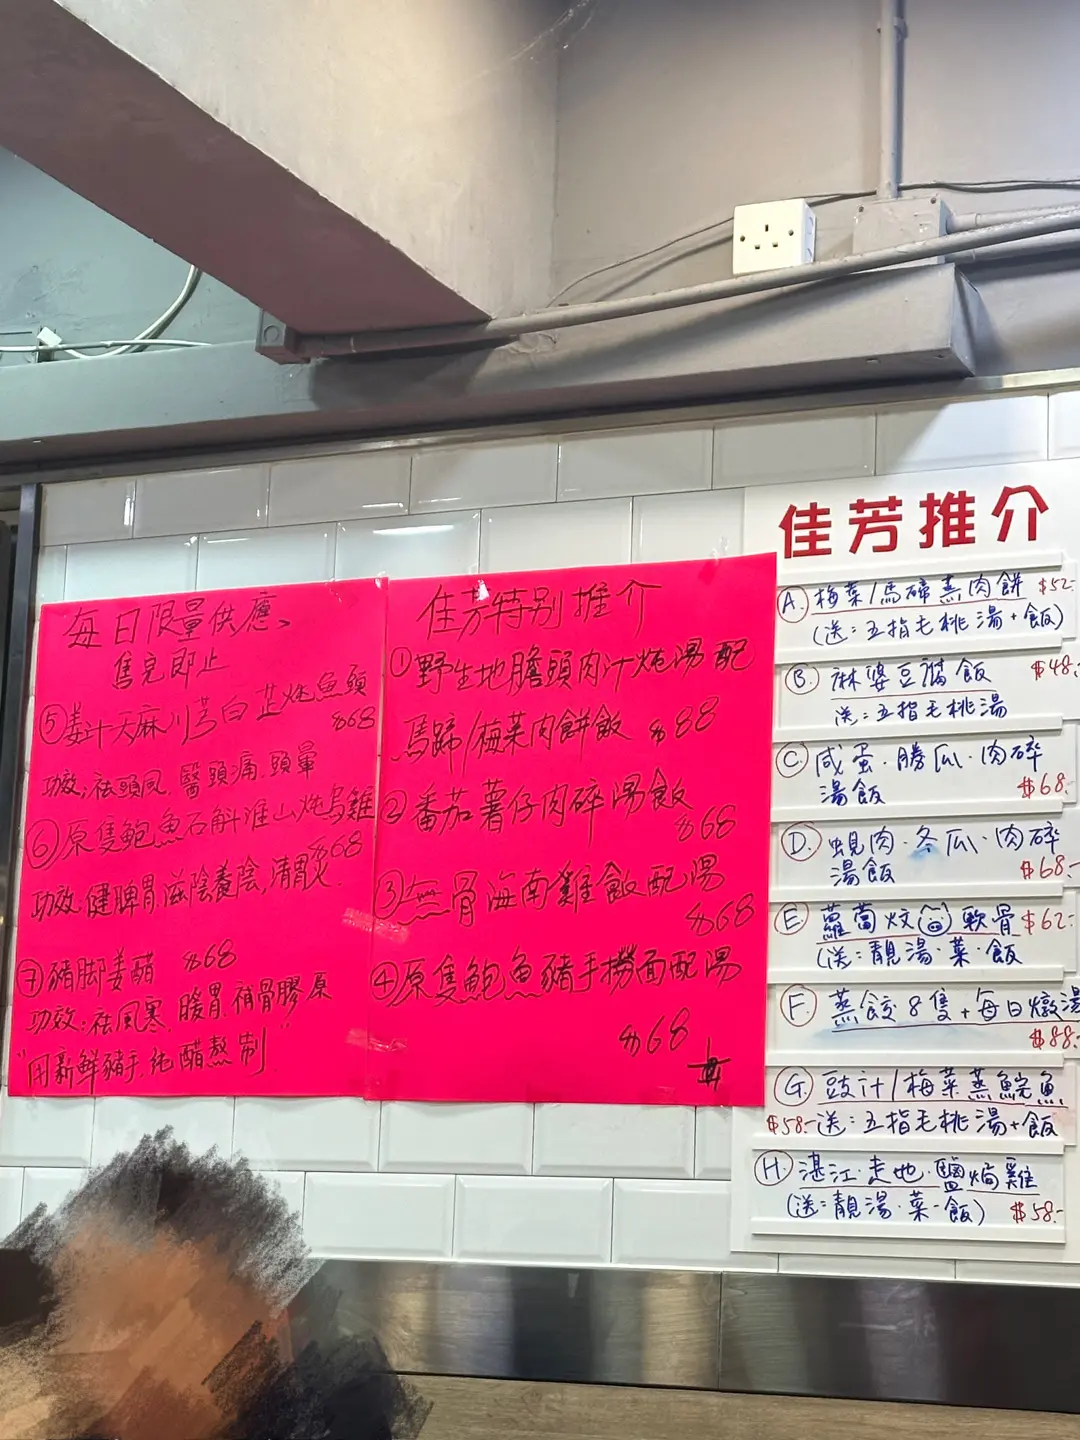 每日限量供應、
售完即止
⑤姜汁天麻川芎白芷炖魚頭
$68
功效:祛頭風.醫頭痛.頭暈
⑥原隻鮑魚石斛淮山炖烏雞
$68
功效:健脾胃.滋陰養陰,清胃火.
⑦豬脚姜醋 $68
功效:祛風寒.暖胃.補骨膠原
"用新鮮豬手.純醋熬制"
佳芳特别推介
①野生地膽頭肉汁炖湯配
馬蹄/梅菜肉餅飯 $88
②番茄薯仔肉碎湯飯
$68
③無骨海南雞飯配湯
$68
④原隻鮑魚豬手撈面配湯
$68
佳芳推介
A. 梅菜/馬蹄蒸肉餅 $52.-
(送:五指毛桃湯+飯)
B. 麻婆豆腐飯 $48.-
送:五指毛桃湯
C. 咸蛋·勝瓜·肉碎
湯飯 $68.-
D. 蜆肉·冬瓜·肉碎
湯飯 $68.-
E 蘿蔔炆軟骨 $62.-
(送:靚湯·菜·飯)
F. 蒸餃8隻+每日燉湯
$88.-
G. 豉汁/梅菜蒸鯇魚
$58.- 送:五指毛桃湯+飯
H. 湛江·走地·鹽焗雞
(送:靚湯·菜·飯) $58.-